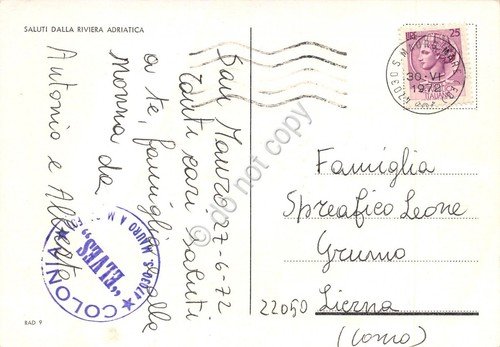 SALUTI DALLA RIVIERA ADRIATICA
San Mauro, 27-6-72
Tanti cari saluti
a te, famiglia e alla
Nonna da
Antonio e Alberta
COLONIA
"ELVES"
LIRE 25
30·VI
1972
Famiglia
Spreafico Leone
Grumo
22050 Lierna
(Como)
RAD 9
do not copy